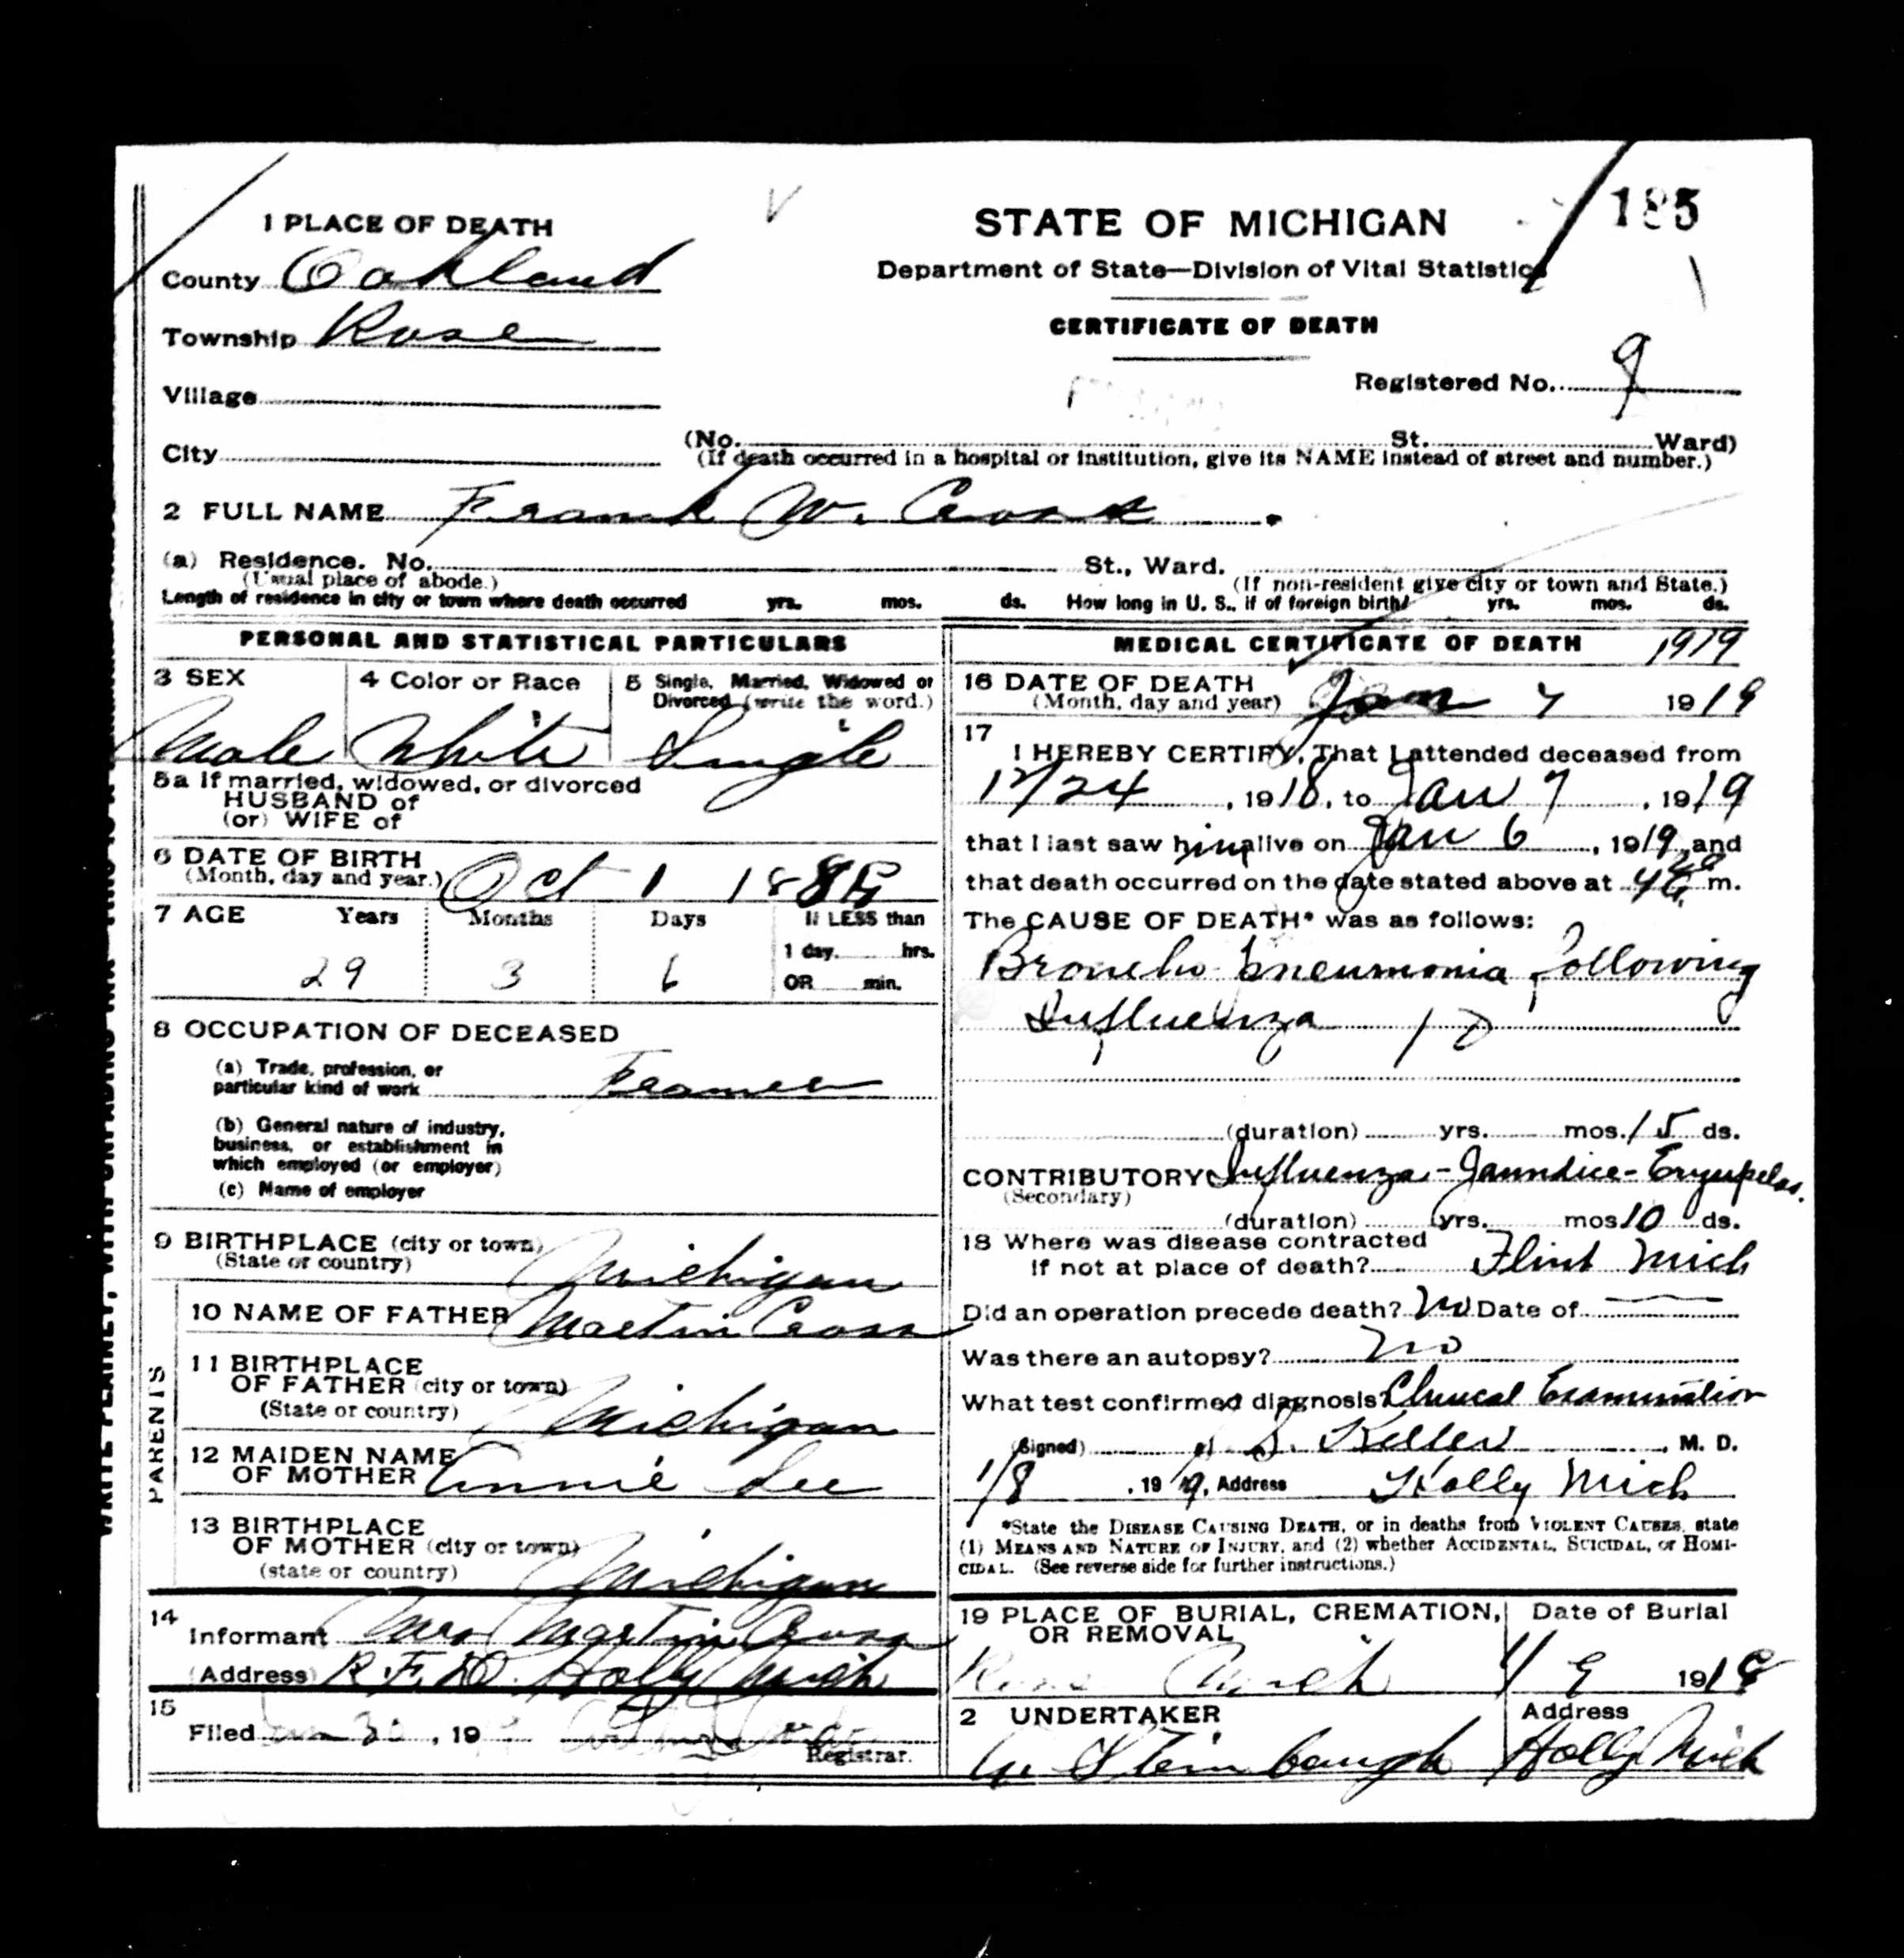 185
1 PLACE OF DEATH
STATE OF MICHIGAN
County Oakland
Department of State—Division of Vital Statistics
Township Rose
CERTIFICATE OF DEATH
Village
Registered No. 9
City
(No. St. Ward)
(If death occurred in a hospital or institution, give its NAME instead of street and number.)
2 FULL NAME Frank W. Cross
(a) Residence. No. St., Ward.
(Usual place of abode.) (If non-resident give city or town and State.)
Length of residence in city or town where death occurred yrs. mos. ds. How long in U. S., if of foreign birth? yrs. mos. ds.
PERSONAL AND STATISTICAL PARTICULARS
3 SEX 4 Color or Race 5 Single, Married, Widowed or
Divorced (write the word.)
Male White Single
5a If married, widowed, or divorced
HUSBAND of
(or) WIFE of
6 DATE OF BIRTH
(Month, day and year.) Oct 1 188
7 AGE Years Months Days If LESS than
1 day. hrs.
29 3 6 OR min.
8 OCCUPATION OF DECEASED
(a) Trade, profession, or
particular kind of work Framer
(b) General nature of industry,
business, or establishment in
which employed (or employer)
(c) Name of employer
9 BIRTHPLACE (city or town)
(State or country) Michigan
PARENTS
10 NAME OF FATHER Martin Cross
11 BIRTHPLACE
OF FATHER (city or town)
(State or country) Michigan
12 MAIDEN NAME
OF MOTHER Annie Lee
13 BIRTHPLACE
OF MOTHER (city or town)
(state or country) Michigan
14
Informant Mrs Martin Cross
(Address) R.F.D. Holly Mich
15
Filed , 19
Registrar.
MEDICAL CERTIFICATE OF DEATH 1919
16 DATE OF DEATH
(Month, day and year) Jan 7 1919
17
I HEREBY CERTIFY, That I attended deceased from
12/24, 1918, to Jan 7, 1919
that I last saw him alive on Jan 6, 1919, and
that death occurred on the date stated above at m.
The CAUSE OF DEATH* was as follows:
Broncho Pneumonia following
Influenza 10
(duration) yrs. mos. 15 ds.
CONTRIBUTORY Influenza - Jaundice - Erysipelas.
(Secondary)
(duration) yrs. mos 10 ds.
18 Where was disease contracted
if not at place of death? Flint Mich
Did an operation precede death? No Date of
Was there an autopsy? No
What test confirmed diagnosis? Clinical Examination
(Signed) S. Keller, M. D.
1/8, 1919, Address Holly Mich
*State the DISEASE CAUSING DEATH, or in deaths from VIOLENT CAUSES, state
(1) MEANS AND NATURE OF INJURY, and (2) whether ACCIDENTAL, SUICIDAL, or HOMI-
CIDAL. (See reverse side for further instructions.)
19 PLACE OF BURIAL, CREMATION, Date of Burial
OR REMOVAL
Rose Mich 1/9 191
2 UNDERTAKER Address
Steinbaugh Holly Mich